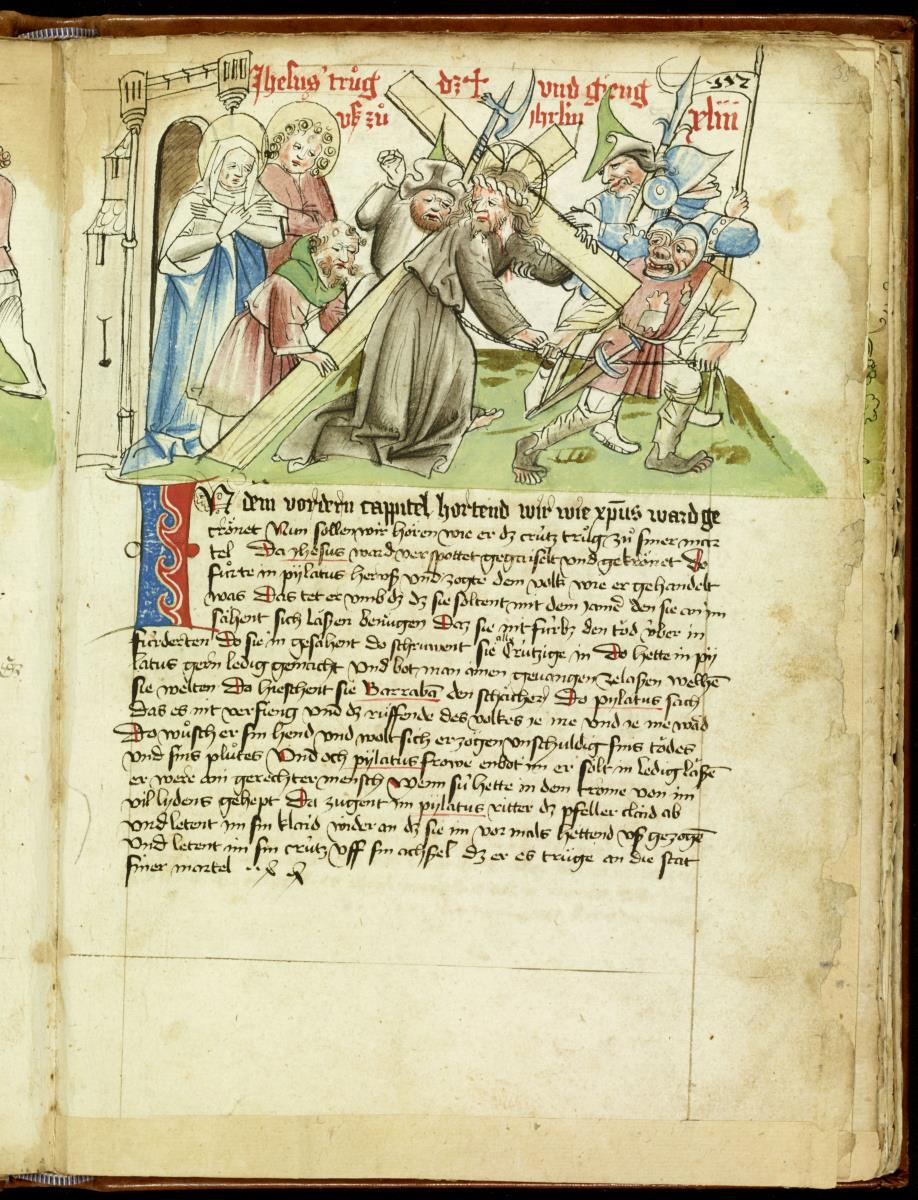 Jhesus trůg dz ✝ vnd gieng
vß zů xliii
IN dëm vordern cappitel hortend wir wie xp̄us ward ge
crönet Nun sollen wir hören wie er dz crütz trůg zů siner mar
tel Da jhesus ward verspottet gegaislett vnd gekrönet Do
fůrte in pylatus heruß vnd zogte dem volk wie er gehandelt
was Das tet er vmb dz dz sie soltent mit dem den sie an im
sähent sich lăßen benügen Daz sie nit fürbz den tod über in
fürderten Do sie in gesähent do schruwent sie Crützige in Do hette in py
latus gern ledig gemacht Vnd bot man ainen geuangen zelaßen welhē
sie welten Da hieschent sie Barrabā den schächer Do pylatus sach
das es nit verfieng vnd dz rüffende des volkes ie me vnd ie me wad
Do wůsch er sin hend vnd wolt sich erzögen vnschuldig sins todes
vnd sins plůtes Vnd och pylatus frowe enbot im er sölt in ledig laßē
er were ain gerechter mensch wenn sü hette in dem trome von im
vil lydens gehept Da zugent im pylatus ritter dz pfeller claid ab
vnd leten im sin klaid wider an dz sie im vor mals hettend vß gezogē
Vnd letent im sin crütz vff sin achssel dz er es trüge an die stat
siner martel